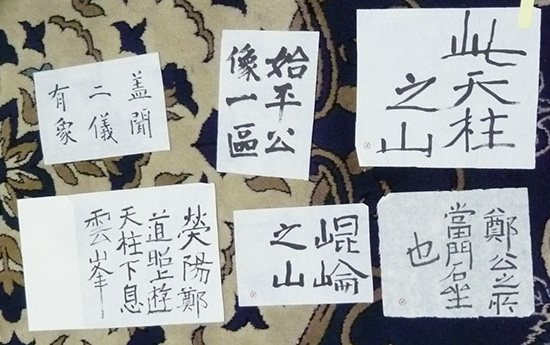 盖聞
二儀
有象
始平公
像一區
此天柱
之山
熒陽鄭
道昭上遊
天柱下息
雲峯
崐崘
之山
鄭公之所
當門石坐
也